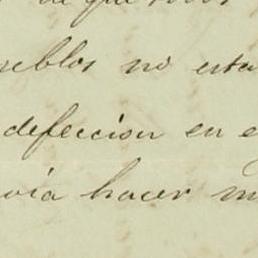 de que
ueblos no esta
defeccion en e
via hacer m